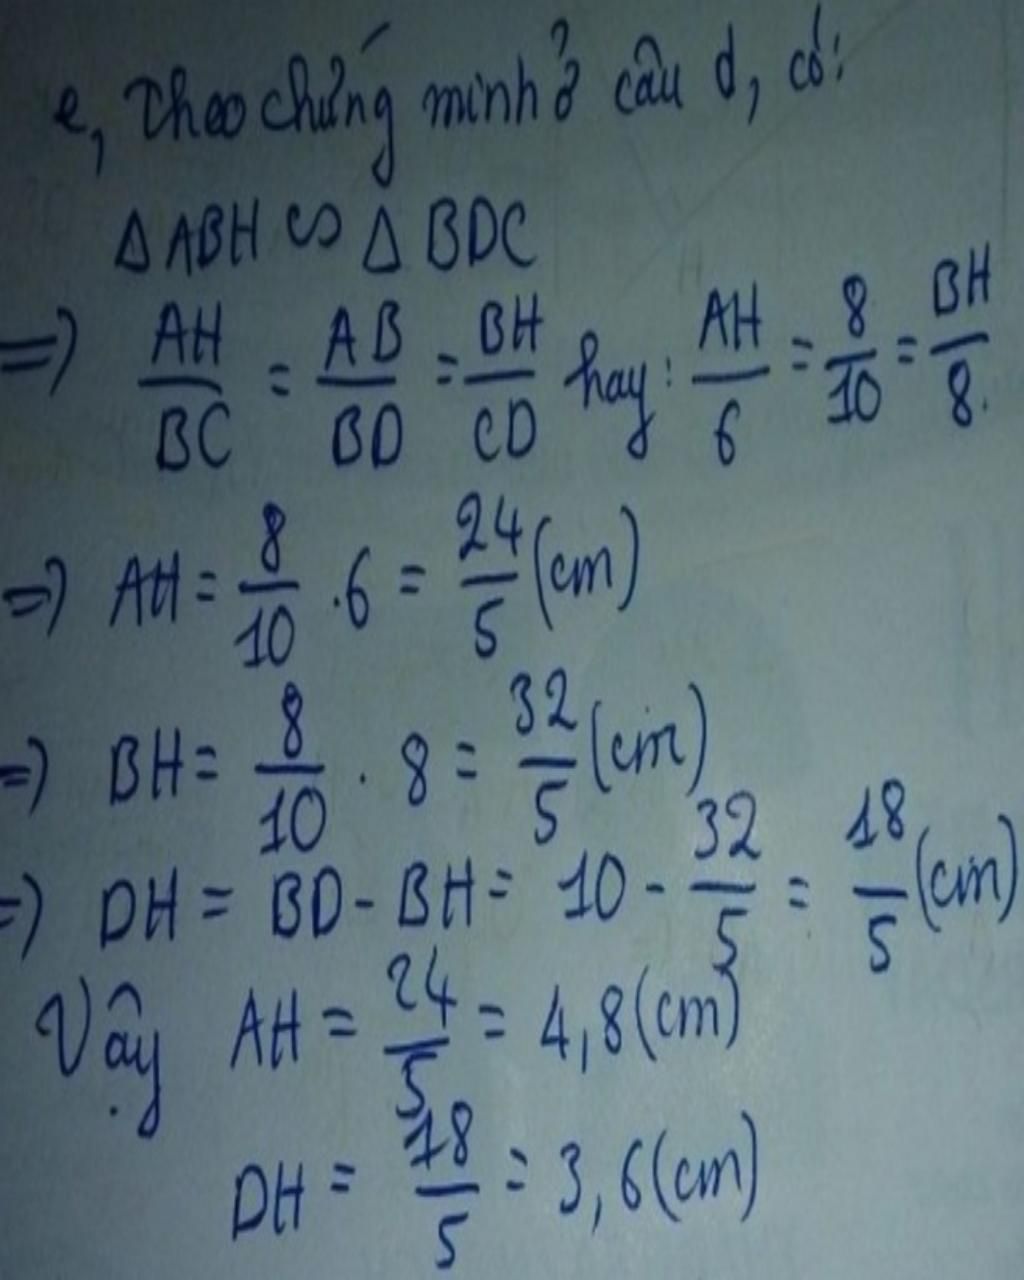 e, Theo chứng minh ở câu d, có:
Δ ABH ∽ Δ BDC
=> AH/BC = AB/BD = BH/CD hay: AH/6 = 8/10 = BH/8.
=> AH = 8/10 .6 = 24/5 (cm)
=> BH = 8/10 . 8 = 32/5 (cm)
=> DH = BD - BH = 10 - 32/5 = 18/5 (cm)
Vậy AH = 24/5 = 4,8 (cm)
DH = 18/5 = 3,6 (cm)